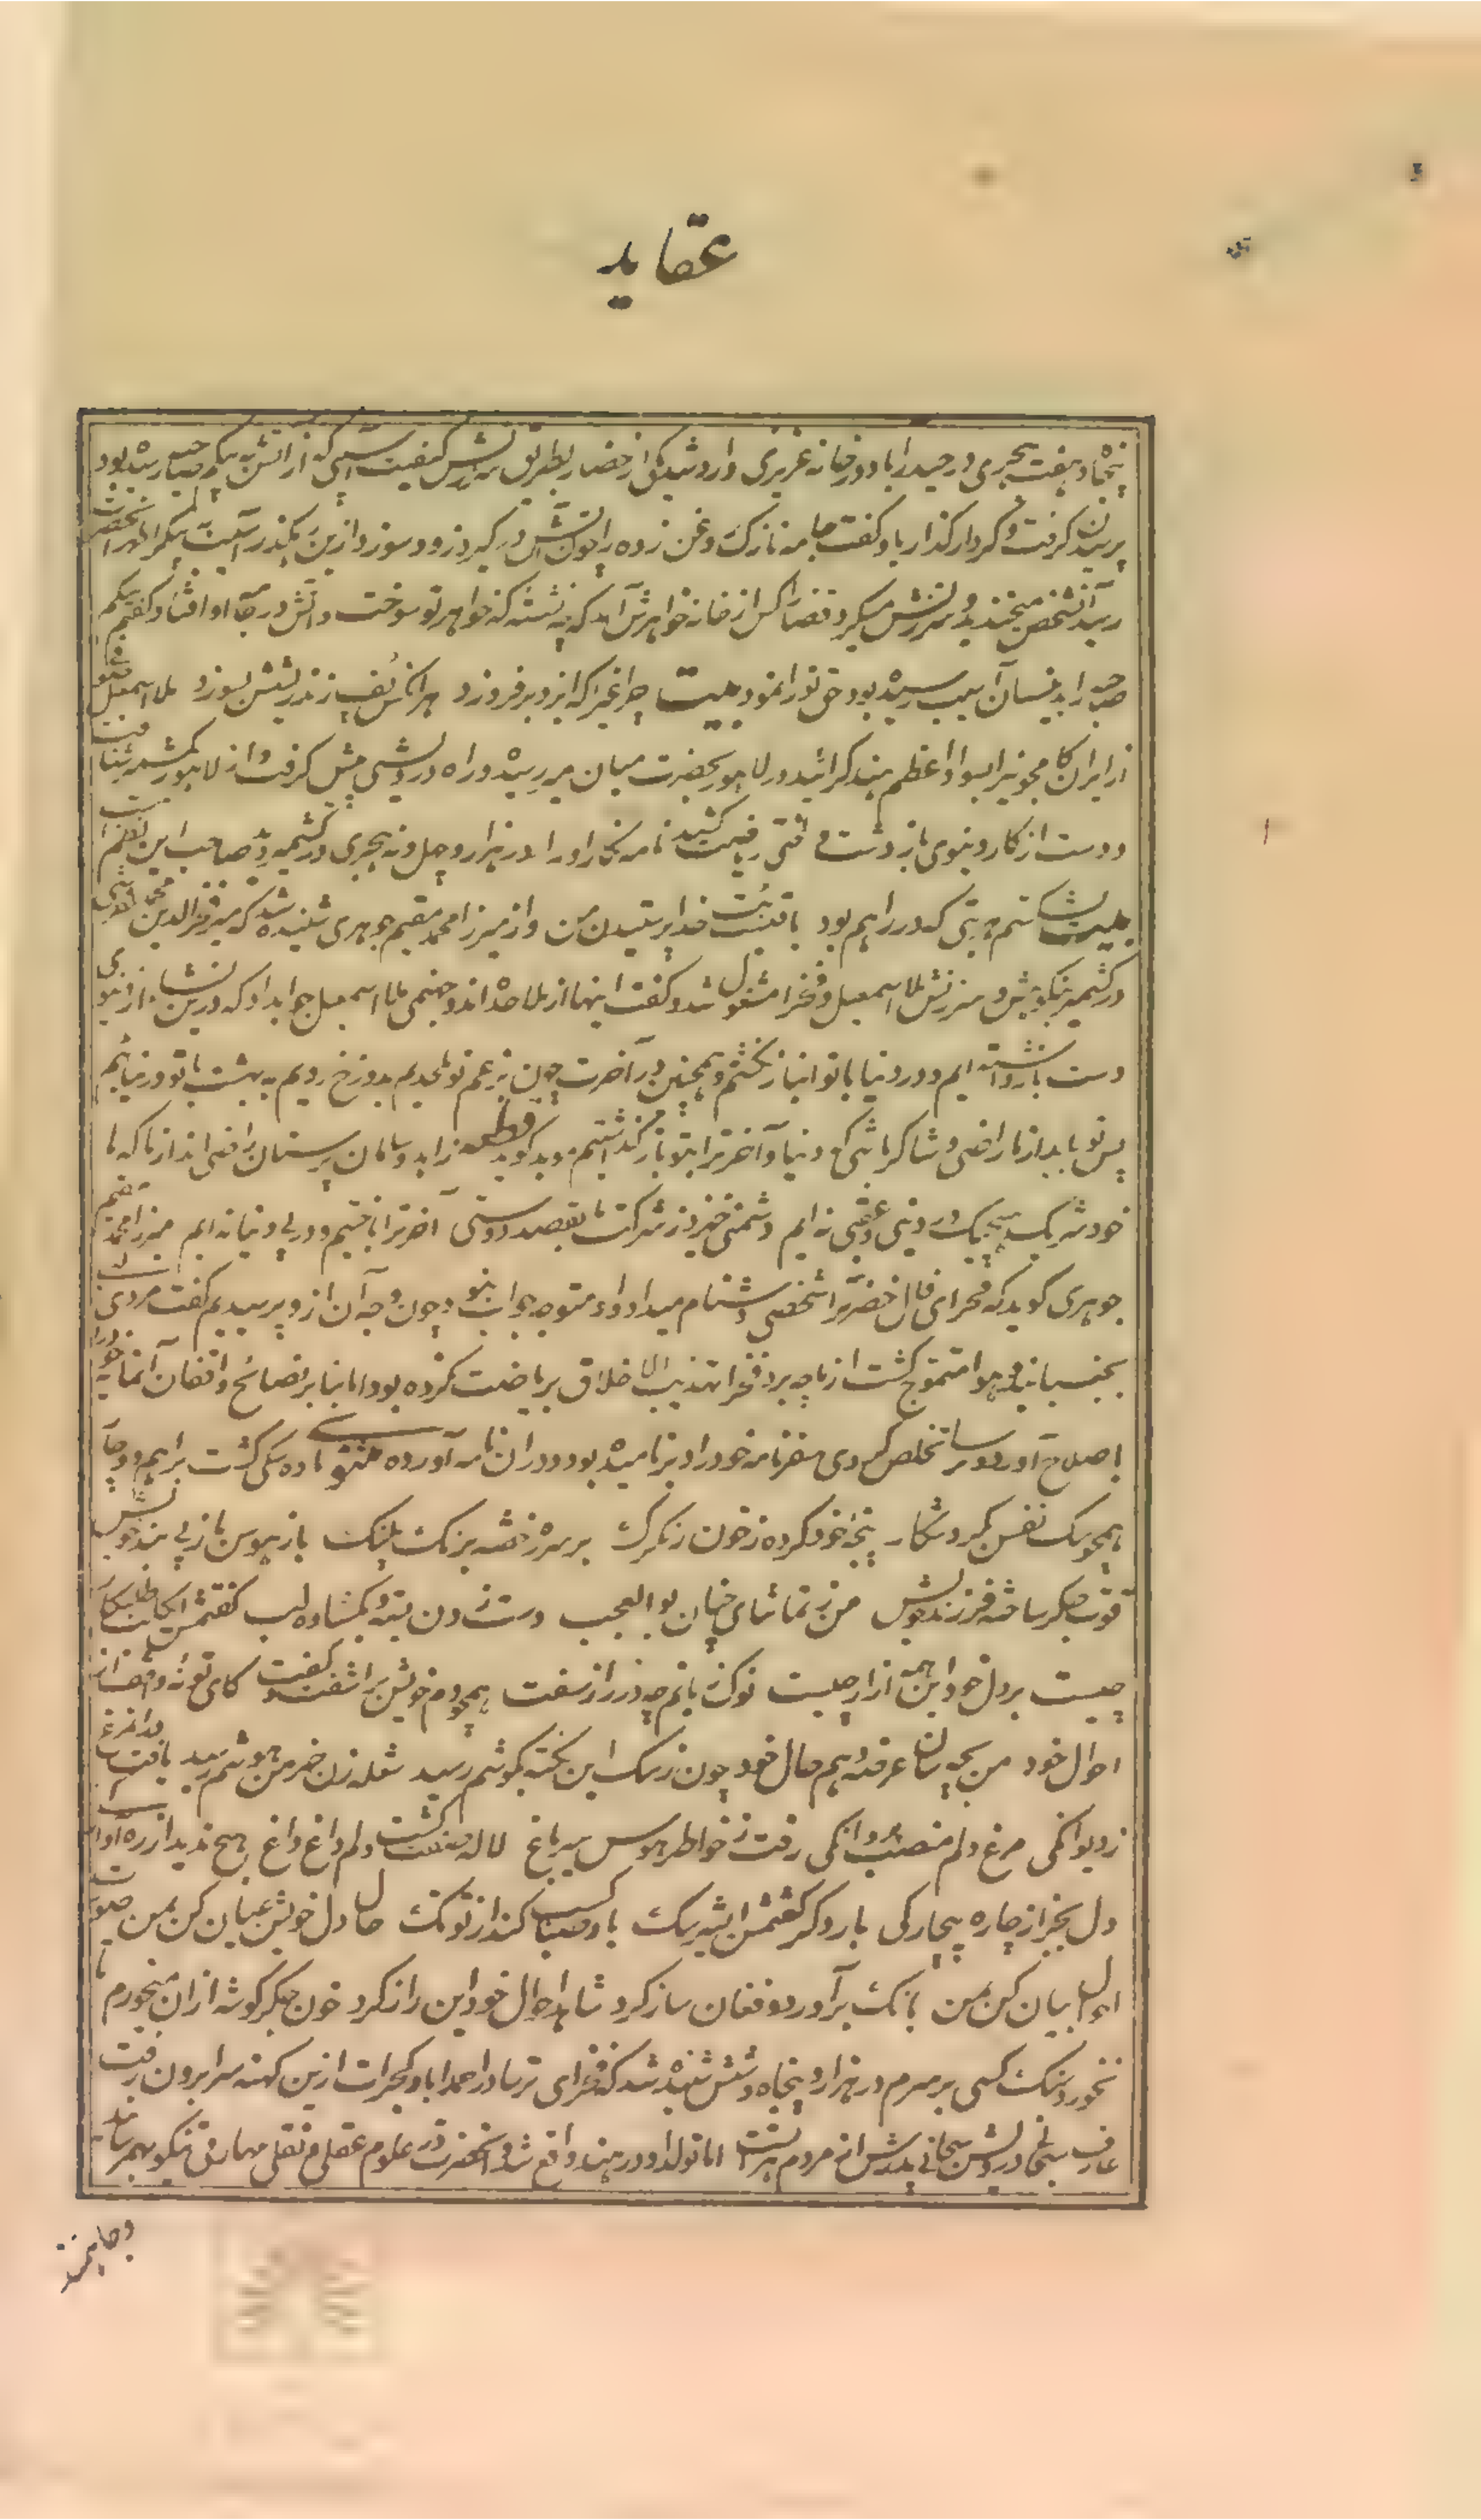 عقاید
پنجاه و هفت هجری در حیدراباد در خانه عزیزی وارد شد یکی از حضار بطریق سرزنش کیفیت آسیبی که از آتش به بیکم صاحب رسیده بود
پرسیدن کرفت و کردار کذار یاد کفت جامه نازک روغن زده را چون آتش در کیرد زود سوزد ازین بکذر آسیب بیکم را
رسید آن شخص میخندید و سرزنش میکرد قضا را کس از خانه خواهرش آمد که چه نشسته که خواهر تو سوخت و آتش در جامه او افتاد کفتم بیکم
صاحب را بدینسان آسیب رسیده بود حق تو را نمود بیت چراغیرا که ایزد برفروزد هرانکس پف زند ریشش بسوزد ملا اسمعیل صوفی
از ایران کامجو نیز بسواد اعظم هند کرائید در لاهور بحضرت میان میر رسیده و راه درویشی پیش کرفت و از لاهور بکشمیر شتافت
و دست از کار دنیوی باز داشت و ریاضت کشید نامه نکار او را در هزار و چهل و نه هجری در کشمیر دید صاحب این نظم است
بیت بشکستم هر بتی که در راهم بود باقیست بت خدا پرستیدن من و از میرزا محمد مقیم جوهری شنیده شد که میر فخرالدین محمد
در کشمیر بنکوهش و سرزنش ملا اسمعیل و فخرا مشغول شد و کفت اینها از ملاحده اند و جهنمی ملا اسمعیل جواب داد که درین نشاء از دنیوی
دست باز داشته ایم و در دنیا با تو انباز نکشتیم و همچنین در آخرت چون بزعم تو ملحدیم بدوزخ رویم به بهشت با تو در نیائیم
پس تو باید از ما راضی و شاکر باشی که دنیا و آخرت را بتو باز کذاشتیم موبد کوید قطعه زاهد و سامان پرستان راضی اند از ما که ما
خود شریک هیچیک در دینی و عقبی نه ایم دشمنی خیزد ز شرکت ما بقصد دوستی آخرت را باختیم و در پی دنیا نه ایم میرزا محمد مقیم
جوهری کوید که فخرای فال حضرت را شخصی دشنام میداد و او متوجه جواب نبود چون وجه آن ازو پرسیدیم کفت مردی
بجنبانید و هوا متموج کشت از ما چه برد فخرا تهذیب اخلاق بریاضت کرده بود اما بنابر نصائح واقفان آنها خود را به
باصلاح آورد و ترسا تخلص کردی سفرنامه خود را دبرنا میده بود و در ان نامه آورده مثنوی ماده سکی کشت براهم دوچار
همچو سک نفس کمردشکار پنجه خود کرده ز خون رنکرک بر سره خفته برنک پلنک باز بهوس باز پی بند خویش
قوت جکر ساخته فرزند خویش من ز تماشای چنان بوالعجب دست زدن بسته و بکشاده لب کفتمش
چیست بر دل خود این همه آزار چیست نوک زبانم چو در راز سفت همچو دم خویش برآشفت و کفت کای تو نه واقف از
احوال خود من بچه سان عرضه دهم حال خود چون ز سک این نکته بکوشم رسید شعله زن خرمن هوشم رسید یافت
ز دیوانکی مرغ دلم منصب پروانکی رفت ز خاطر هوس سیر باغ لاله صفت کشت دلم داغ داغ هیچ ندید از ره
دل بجز از چاره بیچارکی بار دکر کفتمش ای شیر سک باد صبا کسب کند از تو تک حال دل خویش عیان کن بمن صورت
احوال بیان کن بمن بانک برآورد و فغان ساز کرد شاهد احوال خود این راز کرد خون جکر کوشه ازان میخورم تا
نخورد سنک کسی بر سرم در هزار و پنجاه و شش شنیده شد که فخرای ترسا در احمداباد کجرات ازین کهنه سرا برون رفت
عارف سبحانی درویش سبحانی پدرش از مردم هرات است اما تولد او در هند واقع شد و آنحضرت در علوم عقلی و نقلی مهارتی نیکو بهم رسانید